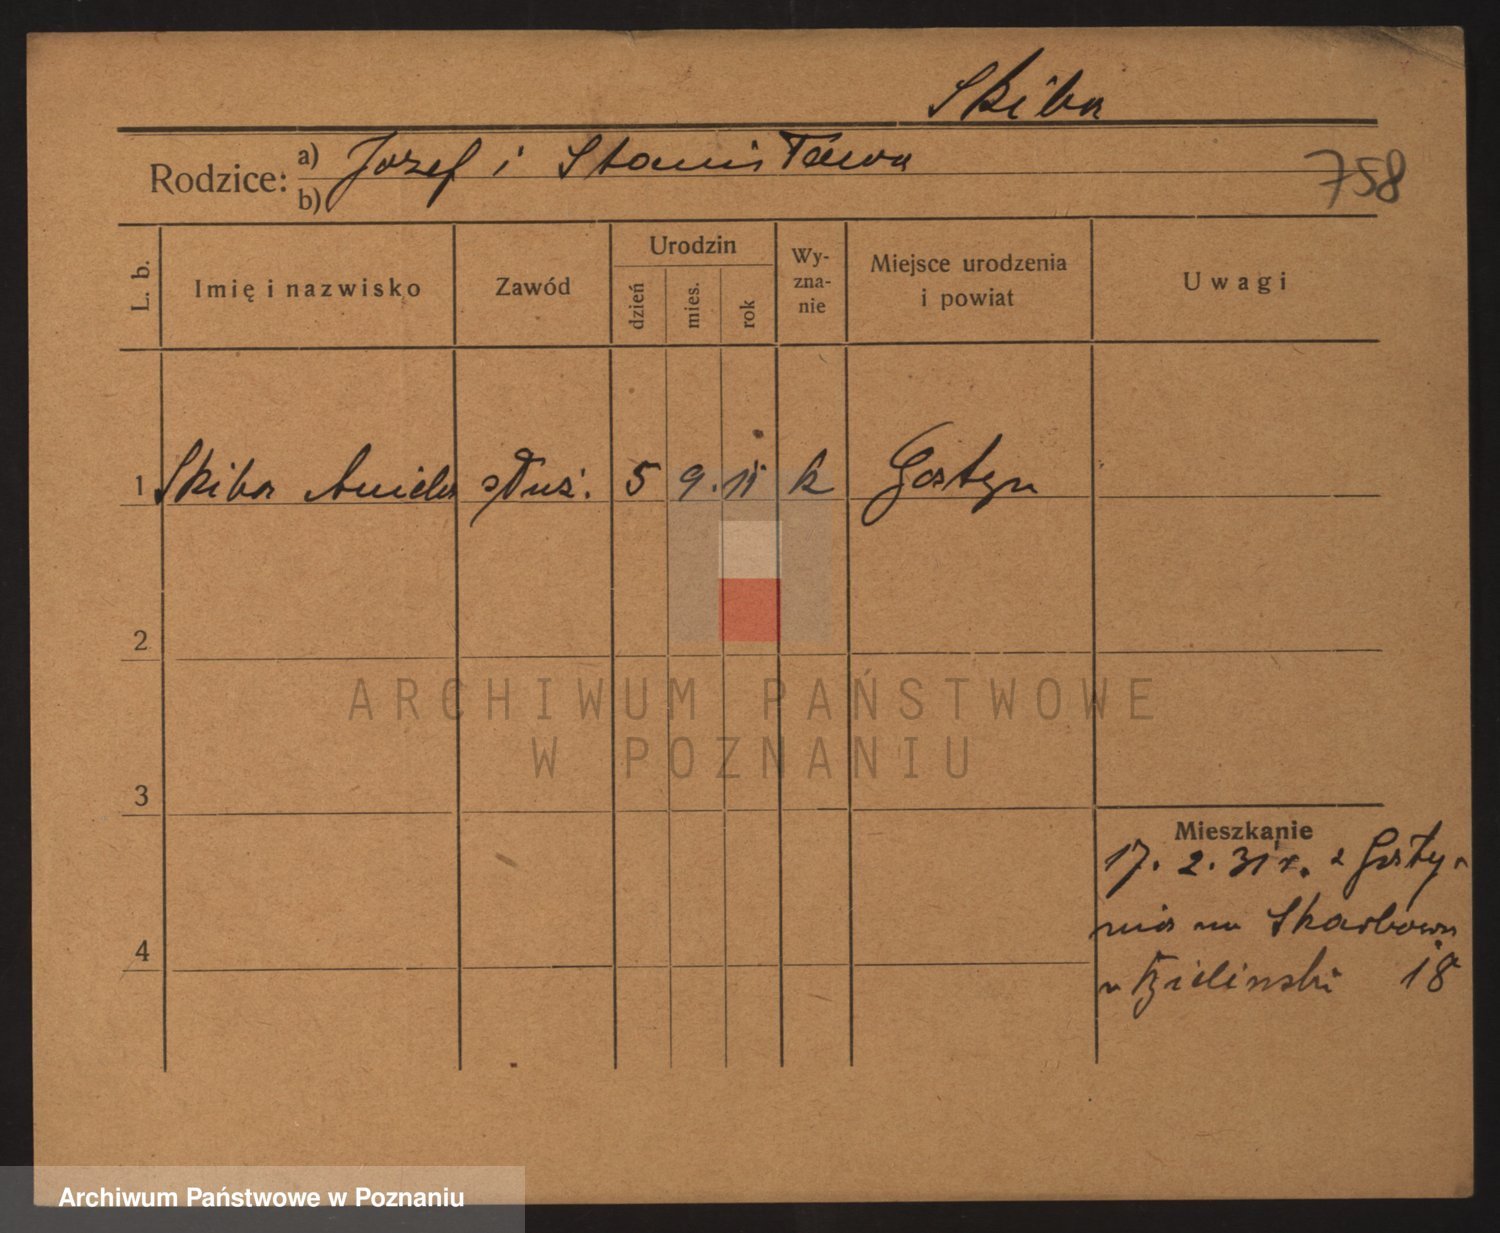 Skiba
Rodzice: a) Józef i Stanisława
b)
758
L. b.
Imię i nazwisko
Zawód
Urodzin
dzień
mies.
rok
Wy-
zna-
nie
Miejsce urodzenia
i powiat
Uwagi
1 Skiba Aniela służ. 5 9. 11 k Gostyn
2
ARCHIWUM PAŃSTWOWE
W POZNANIU
3
Mieszkanie
17. 2. 31 r. z Gosty-
nia na Skarbowa
4
18
Archiwum Państwowe w Poznaniu